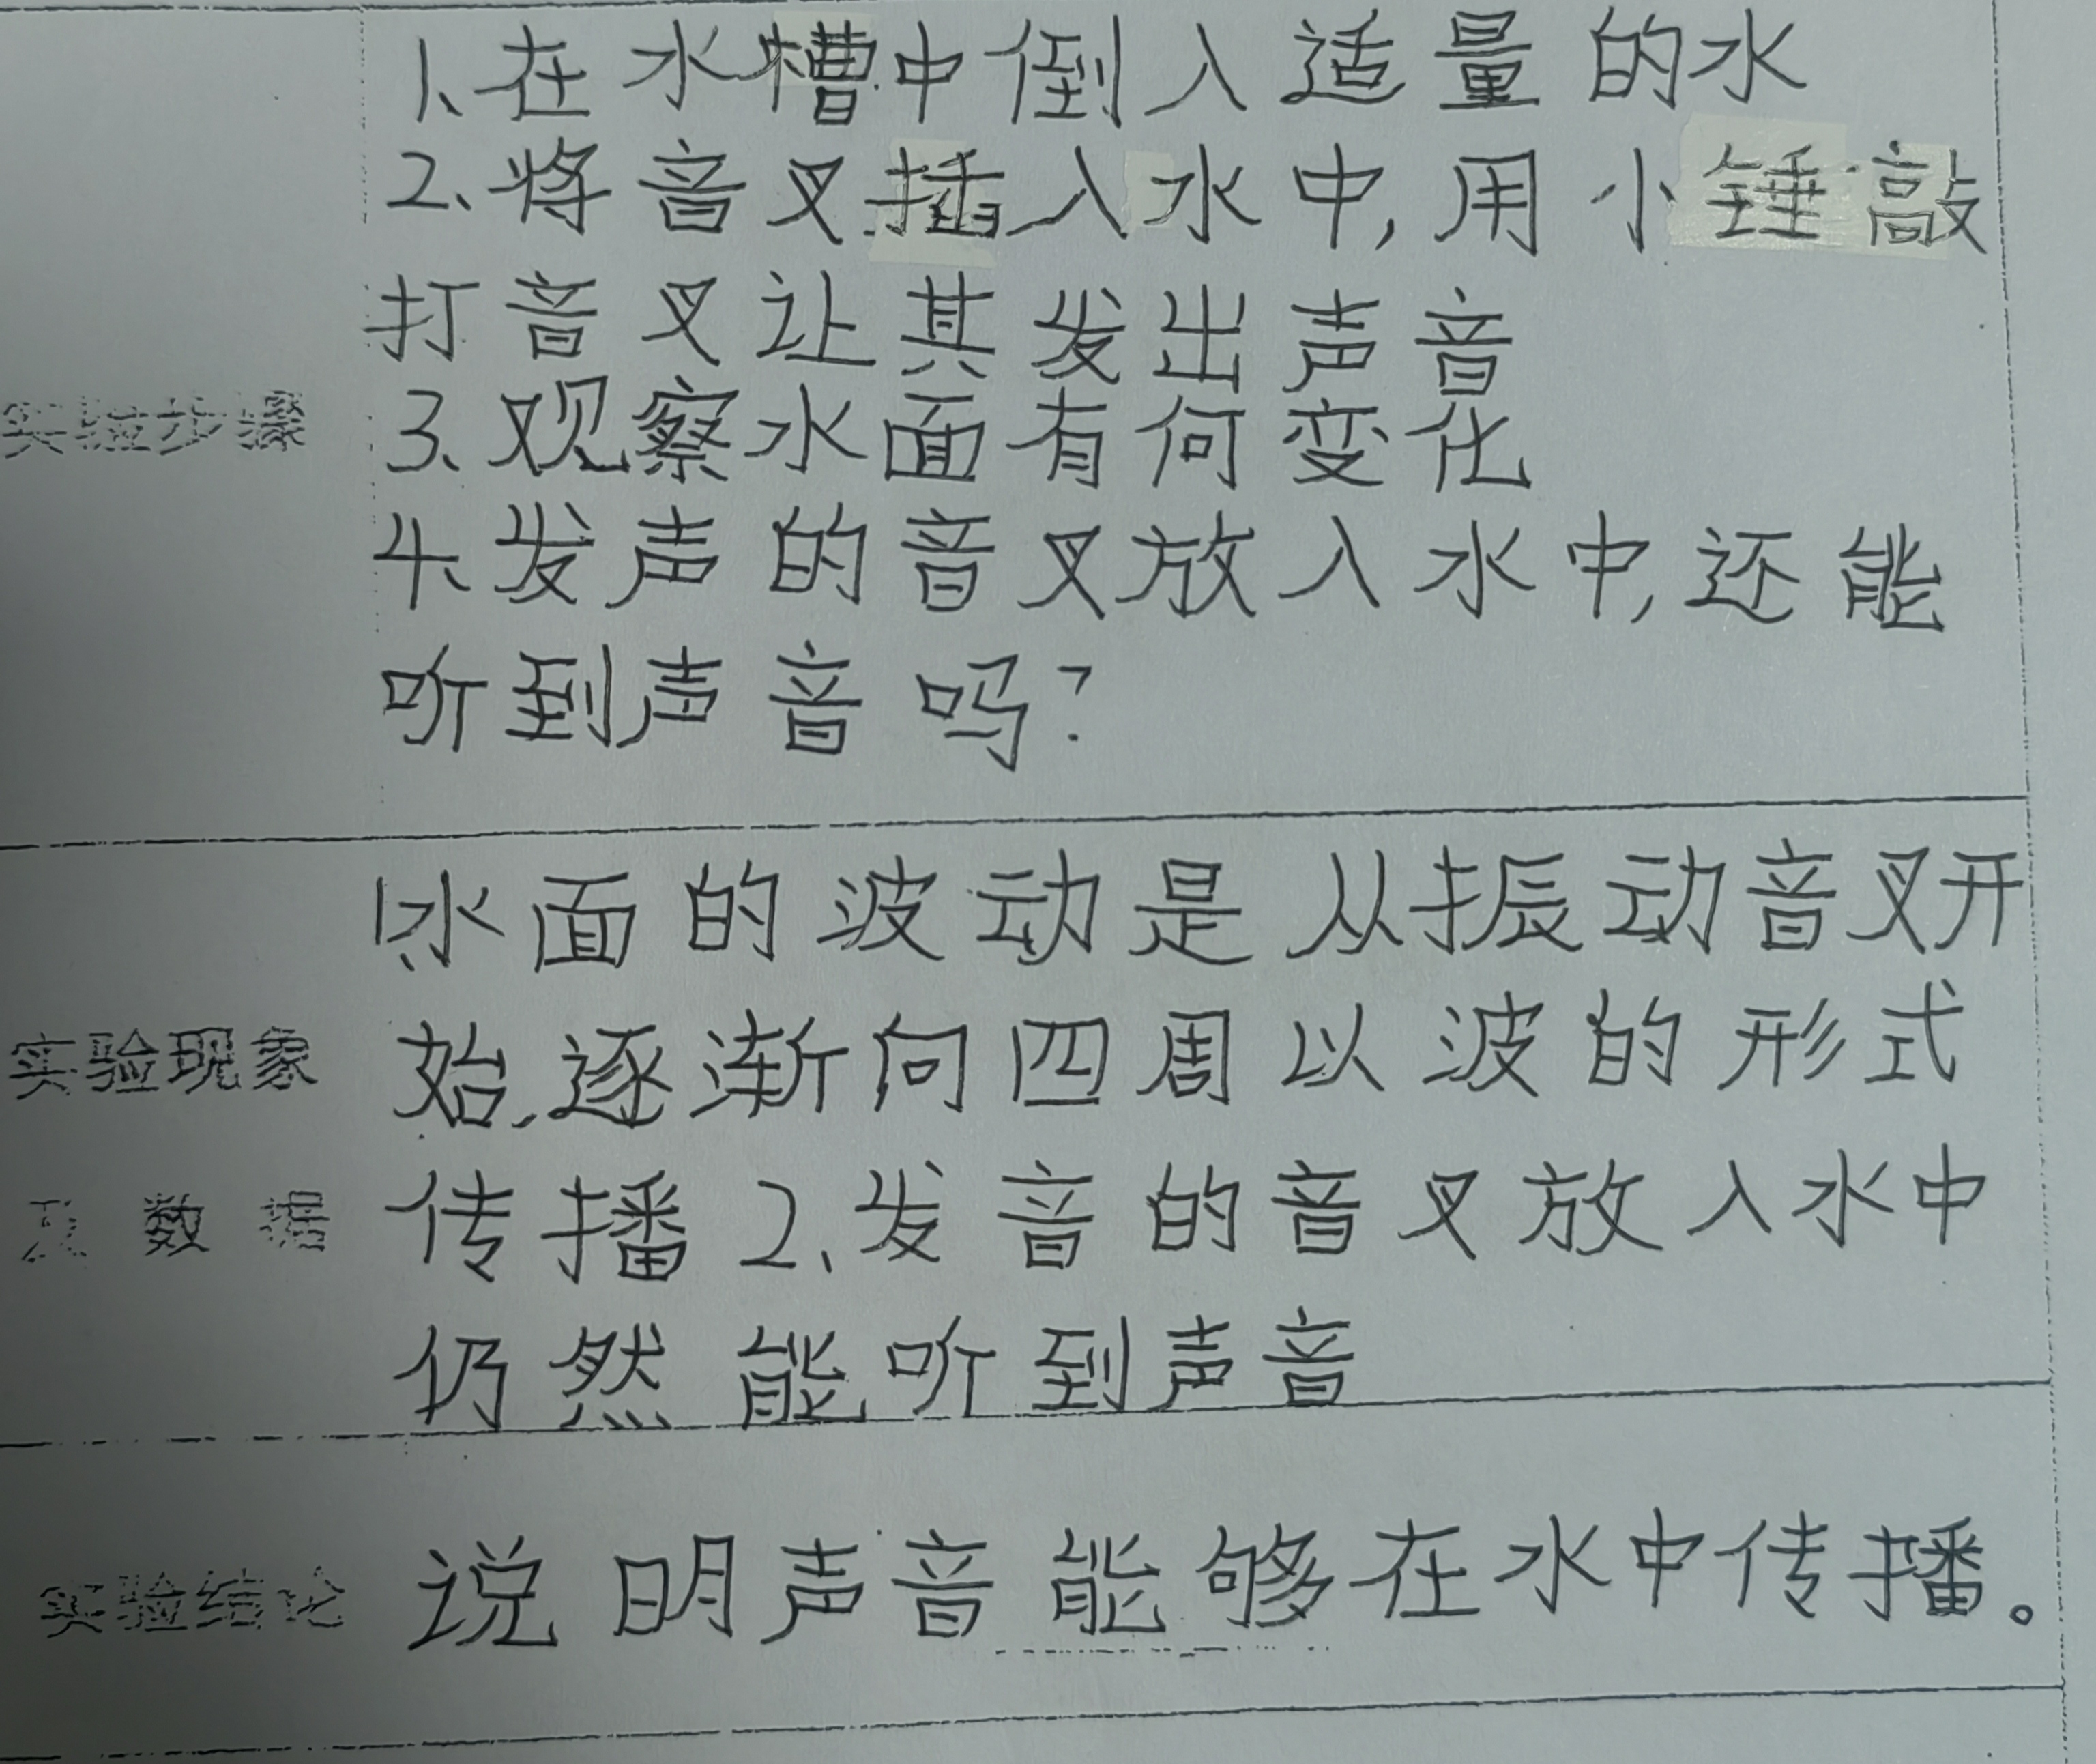 1、在水槽中倒入适量的水
2、将音叉插入水中,用小锤敲
打音叉让其发出声音
实验步骤
3、观察水面有何变化
4、发声的音叉放入水中,还能
听到声音吗?
1、水面的波动是从振动音叉开
实验现象
始,逐渐向四周以波的形式
及数据
传播2、发音的音叉放入水中
仍然能听到声音
实验结论
说明声音能够在水中传播。